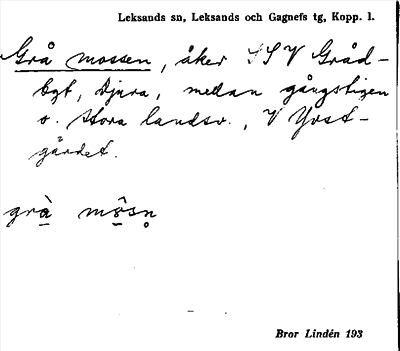 Leksands sn, Leksands och Gagnefs tg, Kopp. l.
Grå mossen, åker SSV Gråd-
byt, Djura, mellan gångstigen
o. stora landsv., V Yvst-
gärdet.
grà môsn̥
Bror Lindén 193